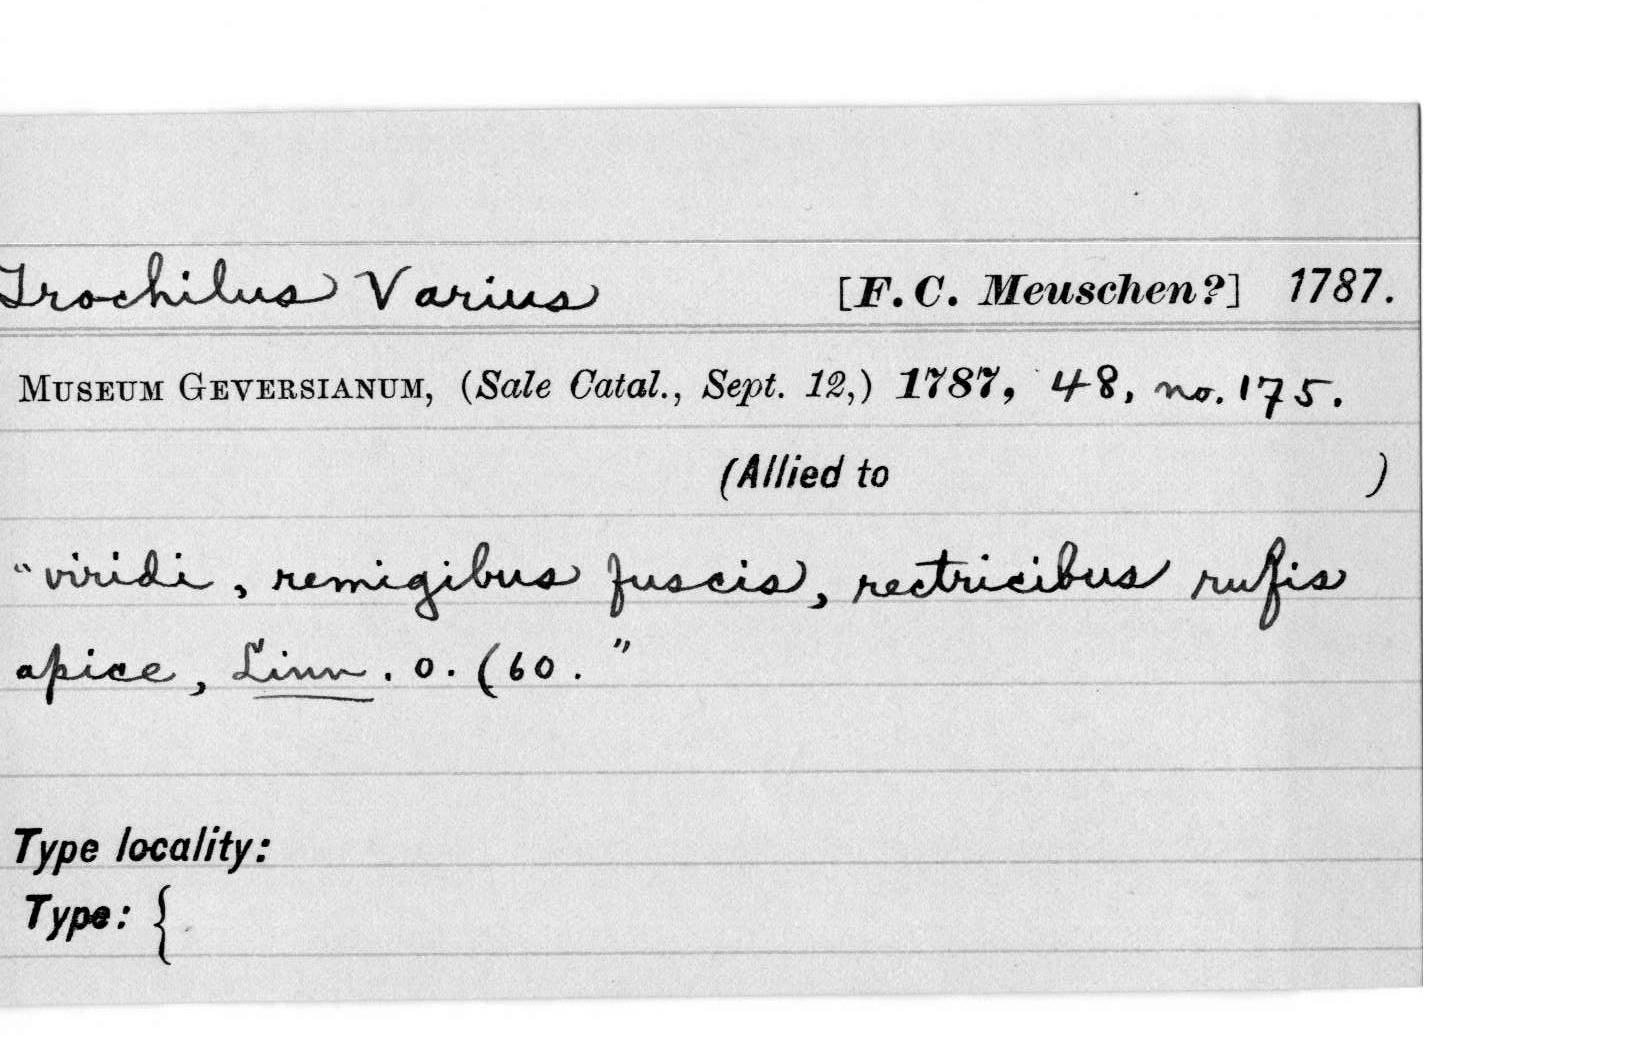 Trochilus Varius [F. C. Meuschen?] 1787.
MUSEUM GEVERSIANUM, (Sale Catal., Sept. 12,) 1787, 48, no. 175.
(Allied to )
"viridi, remigibus fuscis, rectricibus rufis
apice, Linn. o. (60."
Type locality:
Type: {